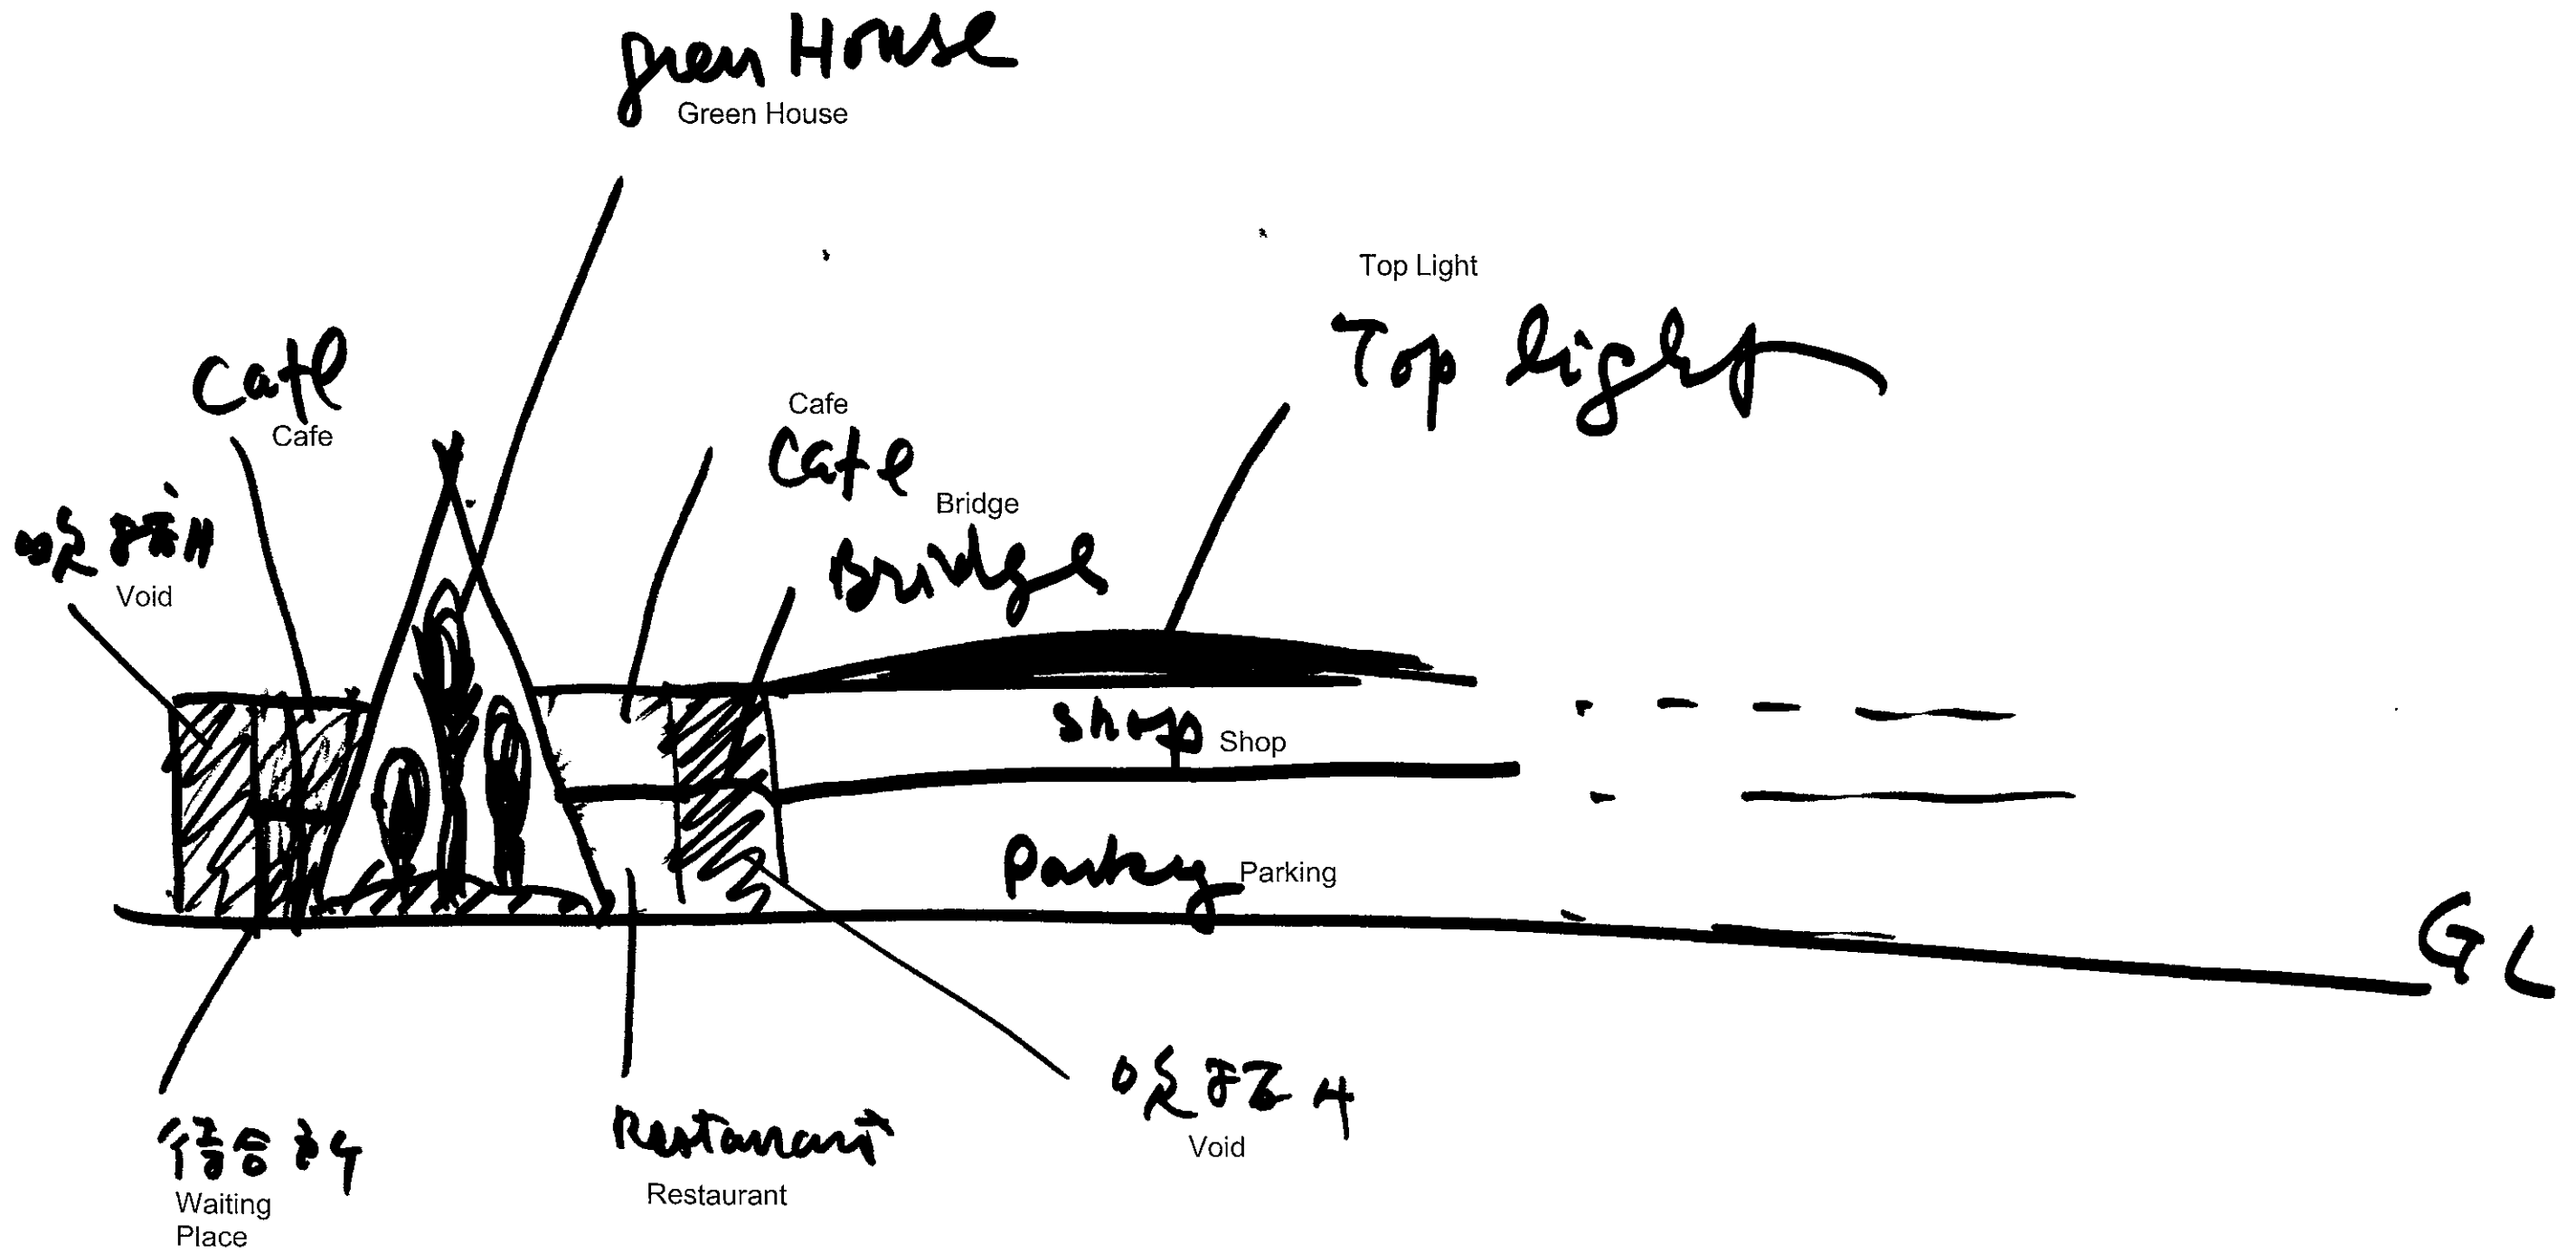 green House
Green House
Top Light
Top light
Cafe
Cafe
Cafe
Cafe
Bridge
Bridge
吹き抜け
Void
shop
Shop
Parking
Parking
GL
吹き抜け
Void
待合
Waiting
Place
Restaurant
Restaurant